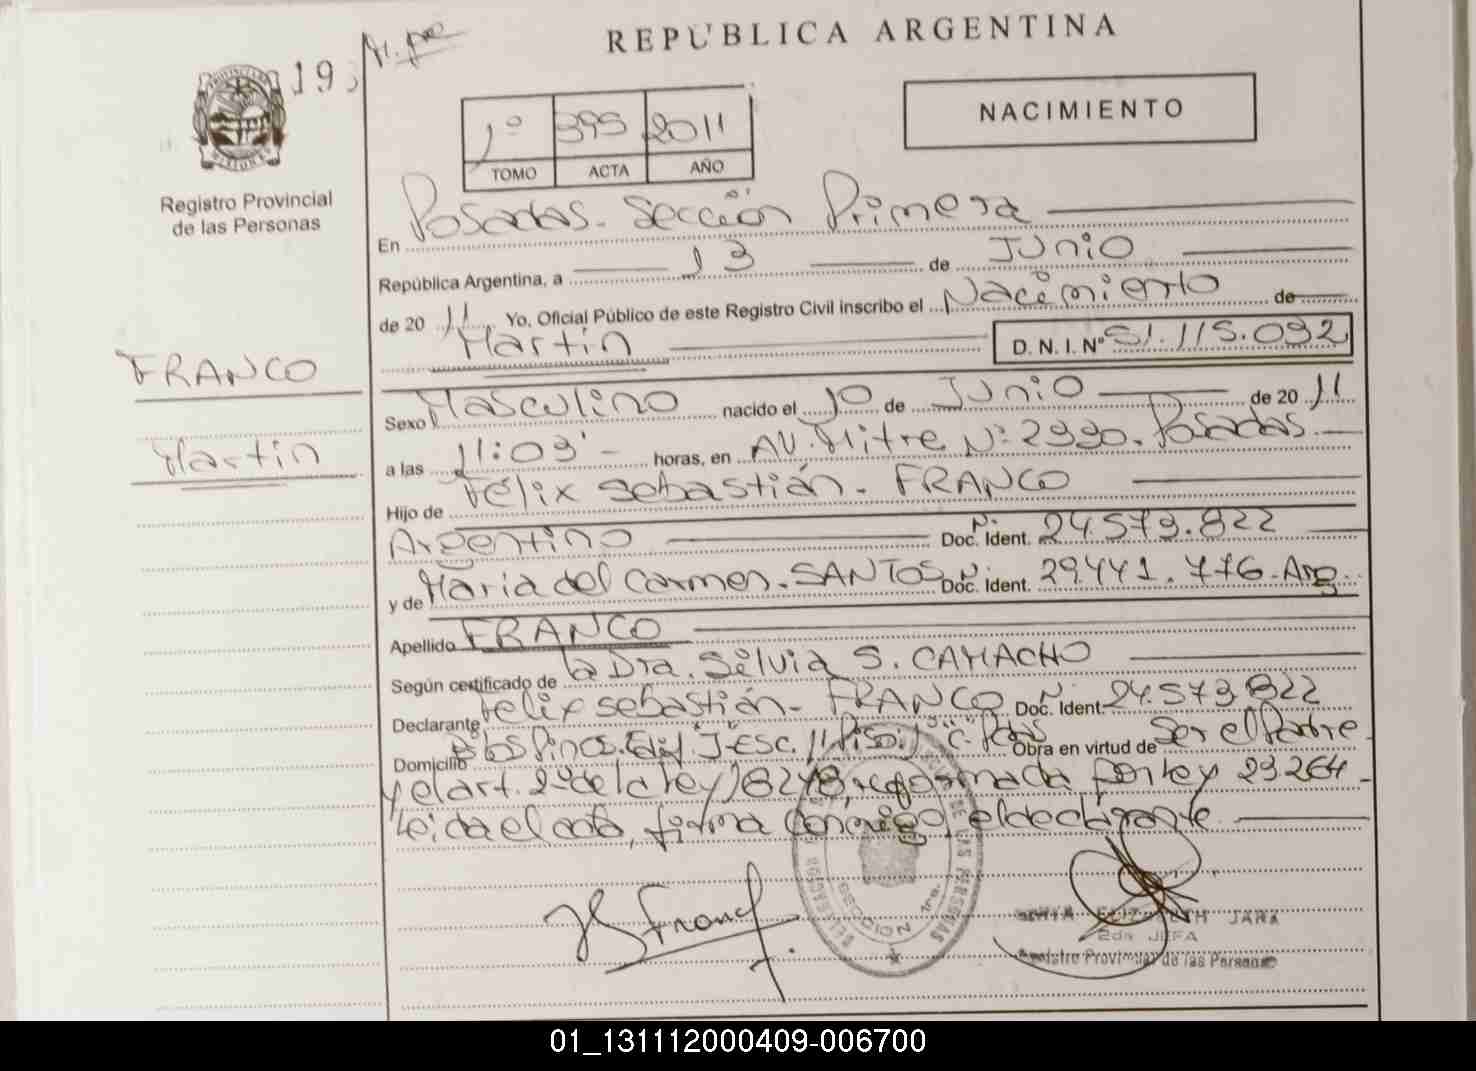 REPUBLICA ARGENTINA
193
NACIMIENTO
1º 395 2011
TOMO ACTA AÑO
Registro Provincial
de las Personas
En Posadas - Sección Primera
República Argentina, a 13 de Junio
de 20 11 Yo, Oficial Público de este Registro Civil inscribo el Nacimiento de
Martin D. N. I. Nº 51.115.092
FRANCO
Martin
Sexo Masculino nacido el 10 de Junio de 20 11
a las 11:03' horas, en AV. Mitre Nº 2990. Posadas
Hijo de Félix Sebastián - FRANCO
Argentino Doc. Ident. 24.573.822
y de Maria del Carmen - SANTOS Doc. Ident. 29.441.776 - Arg.
Apellido FRANCO
Según certificado de la Dra. Silvia S. CAMACHO
Declarante Felix Sebastián - FRANCO Doc. Ident. 24.573.822
Domicilio Pinos. Edif. J ESC. 11 Piso 1 "C" Pdas Obra en virtud de Ser el Padre
y el art. 2º de la ley 18248, reformada por ley 23264 -
Leida el acta, firma conmigo, el declarante
DE LAS PERSONAS
SECCION 1ra.
JARA
2da JEFA
Registro Provincial de las Personas
01_131112000409-006700